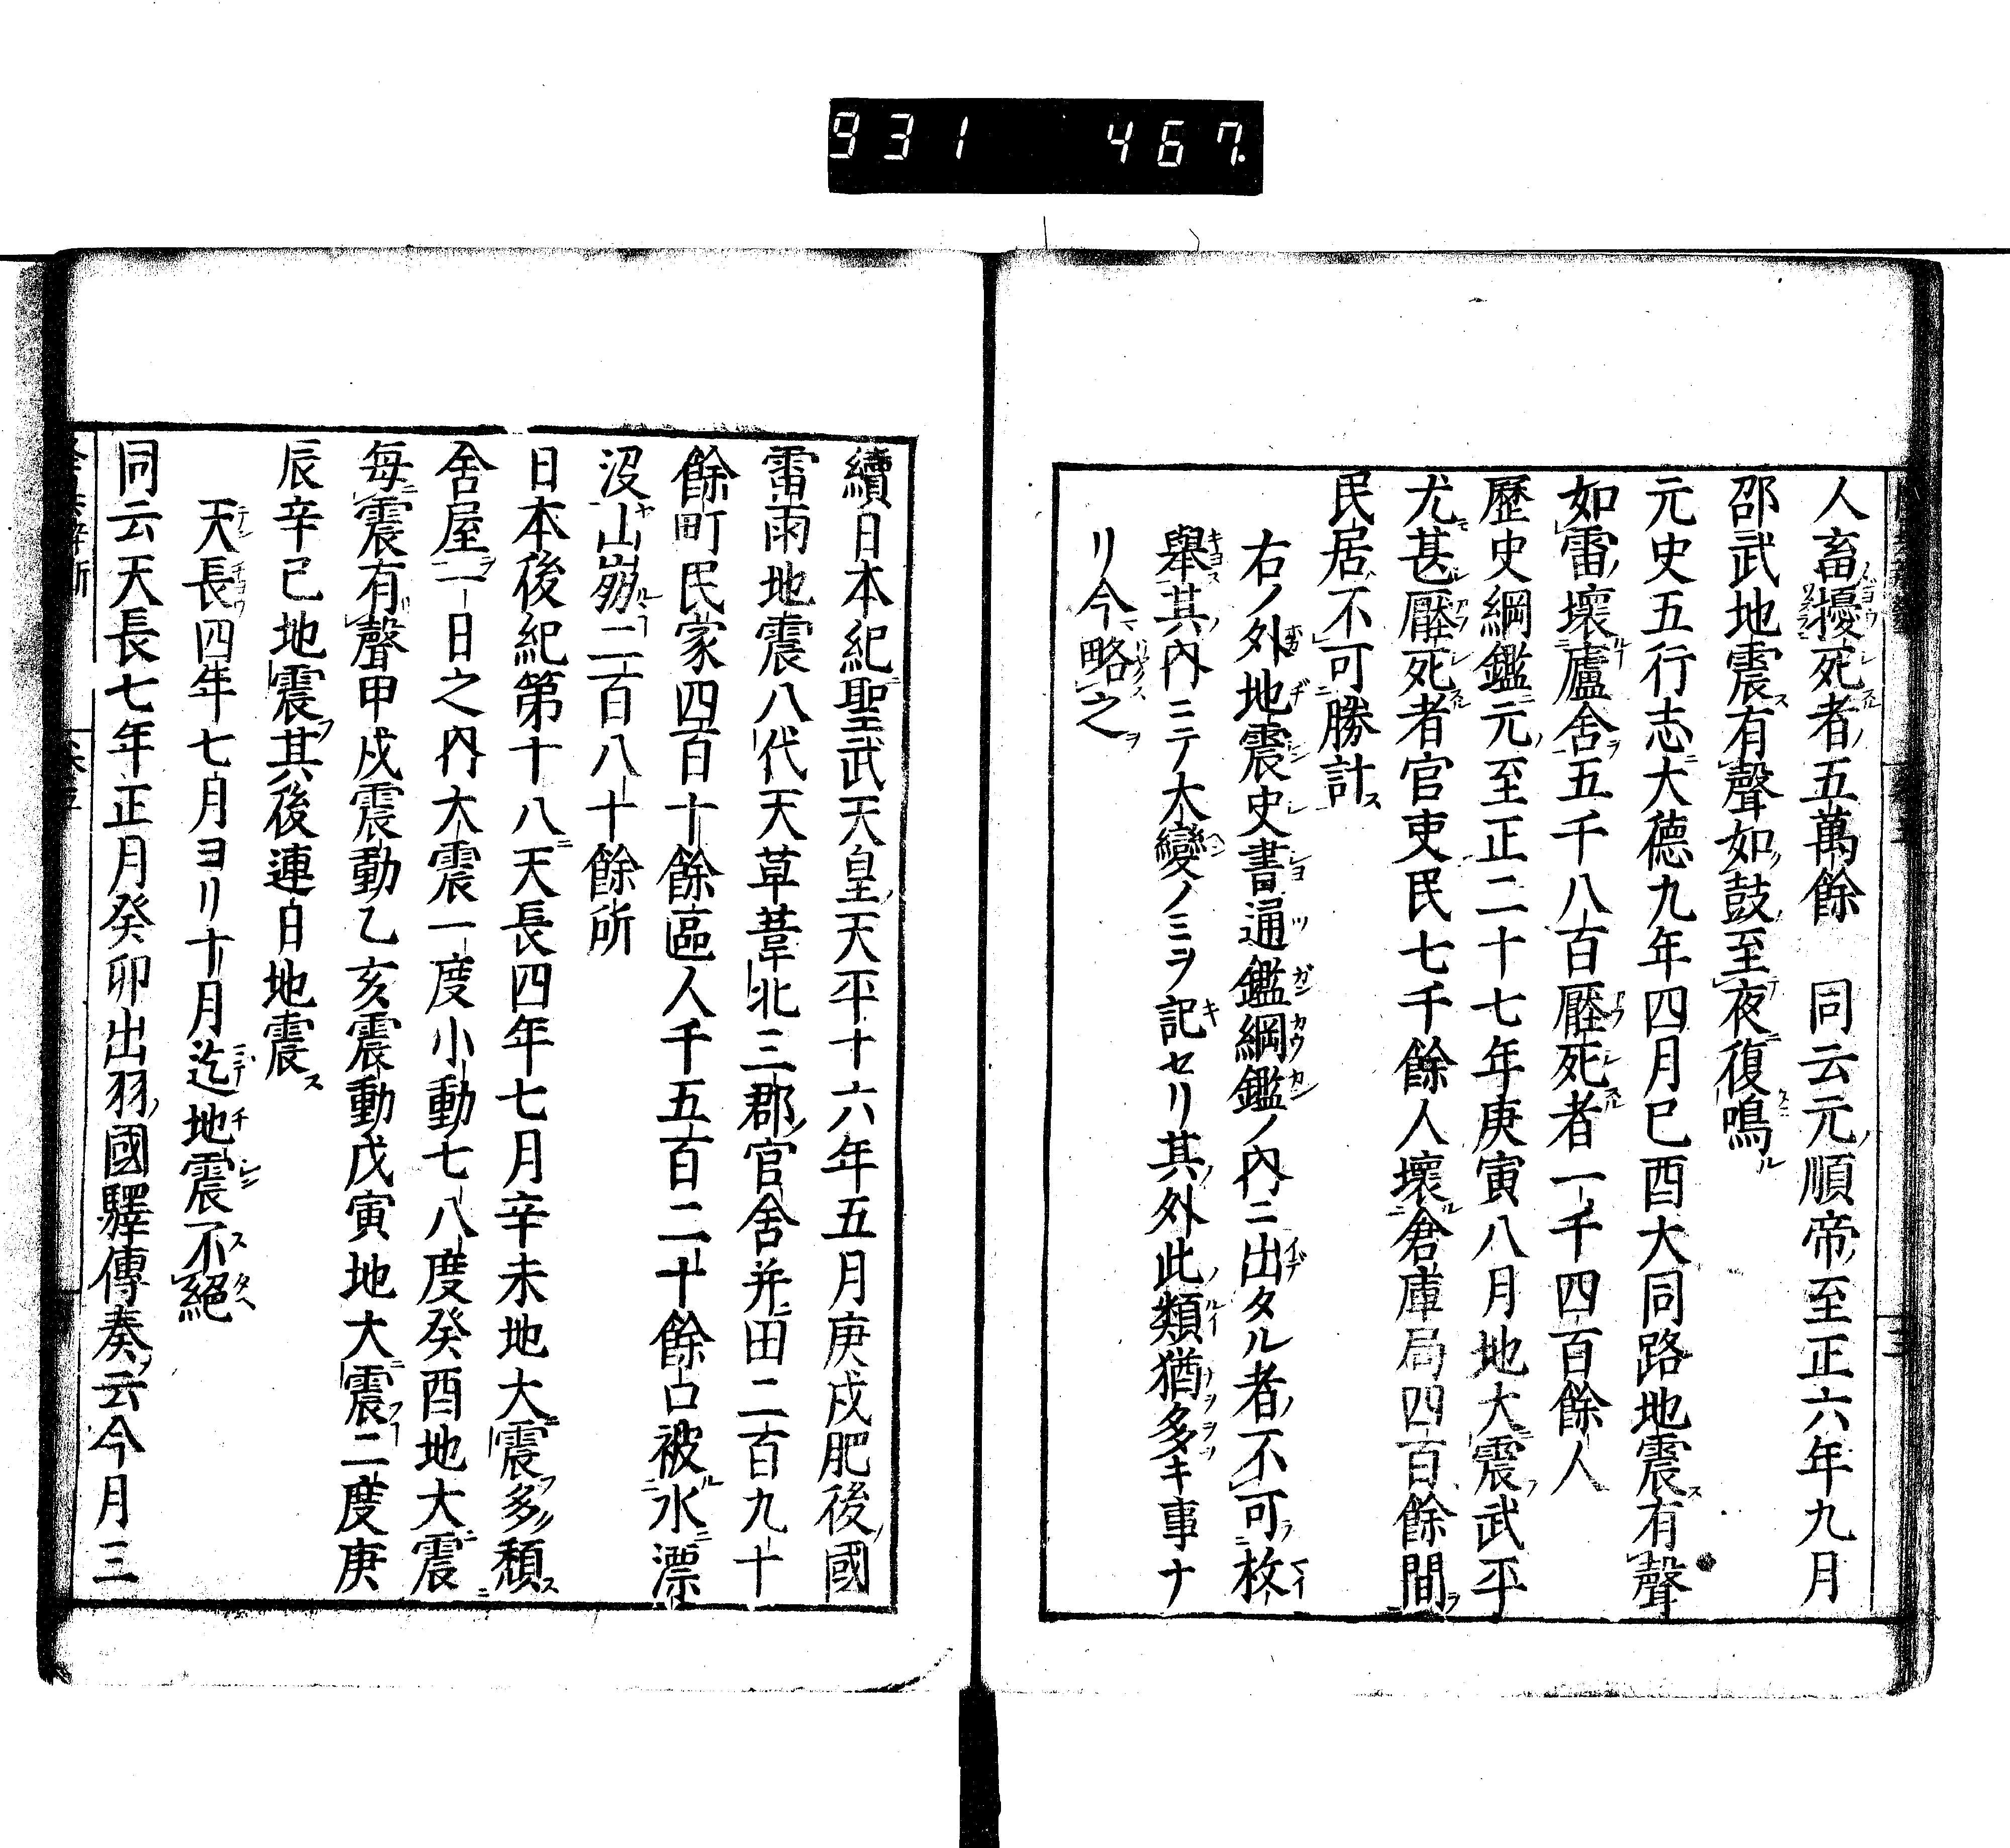 931 467
人畜擾死者五萬餘　同云元順帝至正六年九月
邵武地震有聲如鼓至夜復鳴
元史五行志大德九年四月己酉大同路地震有聲
如雷壞廬舍五千八百壓死者一千四百餘人
歷史綱鑑元至正二十七年庚寅八月地大震武平
尤甚壓死者官吏民七千餘人壞倉庫局四百餘間
民居不可勝計
右ノ外地震史書通鑑綱鑑ノ內ニ出タル者不可枚
舉其內ニテ大變ノミヲ記セリ其外此類猶多キ事ナ
リ今略之
續日本紀聖武天皇天平十六年五月庚戌肥後國
雷雨地震八代天草葦北三郡官舍并田二百九十
餘町民家四百十餘區人千五百二十餘口被水漂
沒山崩二百八十餘所
日本後紀第十八天長四年七月辛未地大震多頹
舍屋一日之內大震一度小動七八度癸酉地大震
每震有聲甲戌震動乙亥震動戊寅地大震二度庚
辰辛巳地震其後連日地震
天長四年七月ヨリ十月迄地震不絕
同云天長七年正月癸卯出羽國驛傳奏云今月三